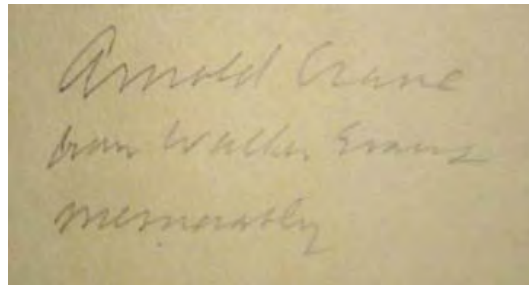 Arnold Crane
from Walker Evans
memorably